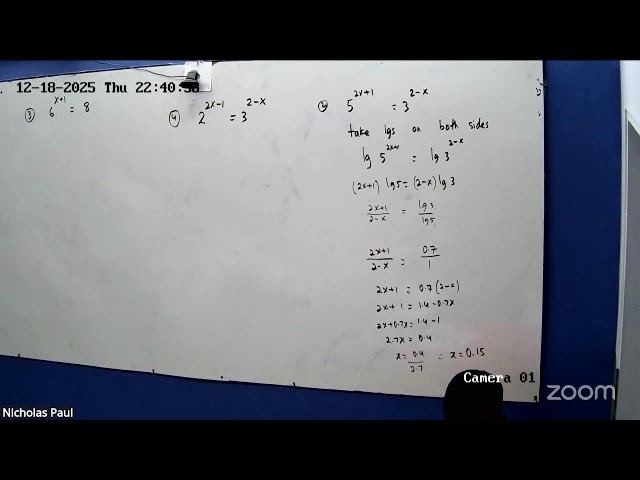 12-18-2025 Thu 22:40:58
③ 6^{x+1} = 8
④ 2^{2x-1} = 3^{2-x}
5^{2x+1} = 3^{2-x}
take lgs on both sides
lg 5^{2x+1} = lg 3^{2-x}
(2x+1) lg5 = (2-x) lg 3
2x+1/2-x = lg3/lg5
2x+1/2-x = 0.7/1
2x+1 = 0.7(2-x)
2x+1 = 1.4-0.7x
2x+0.7x = 1.4-1
2.7x = 0.4
x = 0.4/2.7 = x = 0.15
Camera 01
zoom
Nicholas Paul